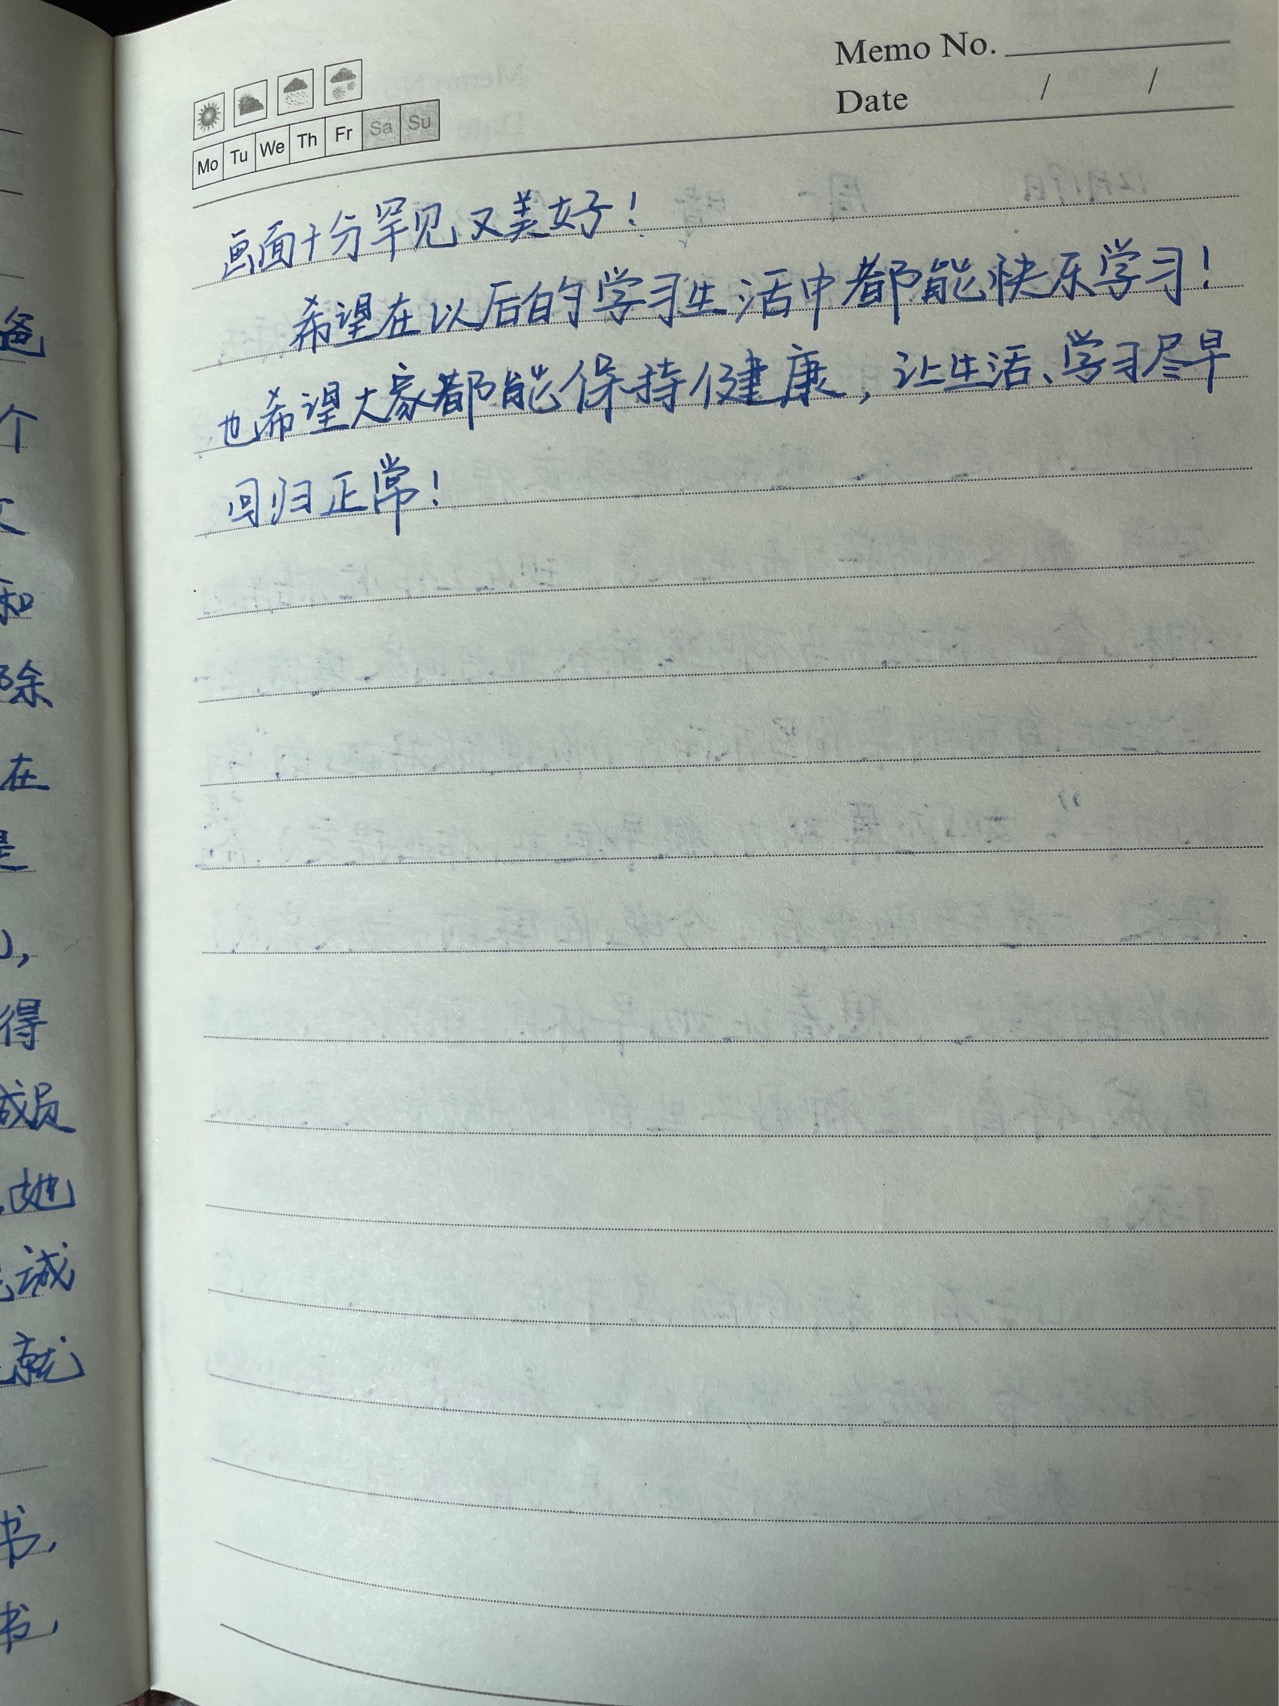 Memo No.
Date / /
Mo Tu We Th Fr Sa Su
画面十分罕见又美好！
希望在以后的学习生活中都能快乐学习！
也希望大家都能保持健康，让生活、学习尽早
回归正常！
爸
个
和
除
在
是
），
得
成员
她
诚
就
书，
书，